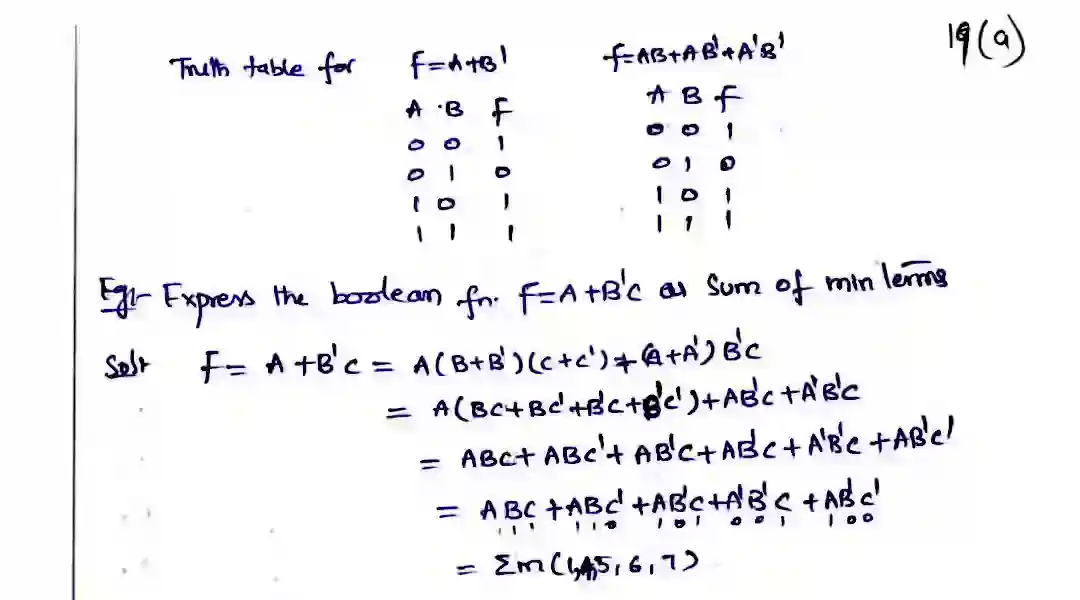 19(a)
Truth table for f=A+B' f=AB+AB'+A'B'
A B f A B f
0 0 1 0 0 1
0 1 0 0 1 0
1 0 1 1 0 1
1 1 1 1 1 1
Eg:- Express the boolean fn. f=A+B'C as Sum of min terms
Sol:- f= A+B'C = A(B+B')(C+C')+(A+A')B'C
= A(BC+BC'+B'C+B'C')+AB'C+A'B'C
= ABC+ABC'+AB'C+AB'C+A'B'C+AB'C'
= ABC+ABC'+AB'C+A'B'C+AB'C'
111 110 101 001 100
= Σm(1,4,5,6,7)